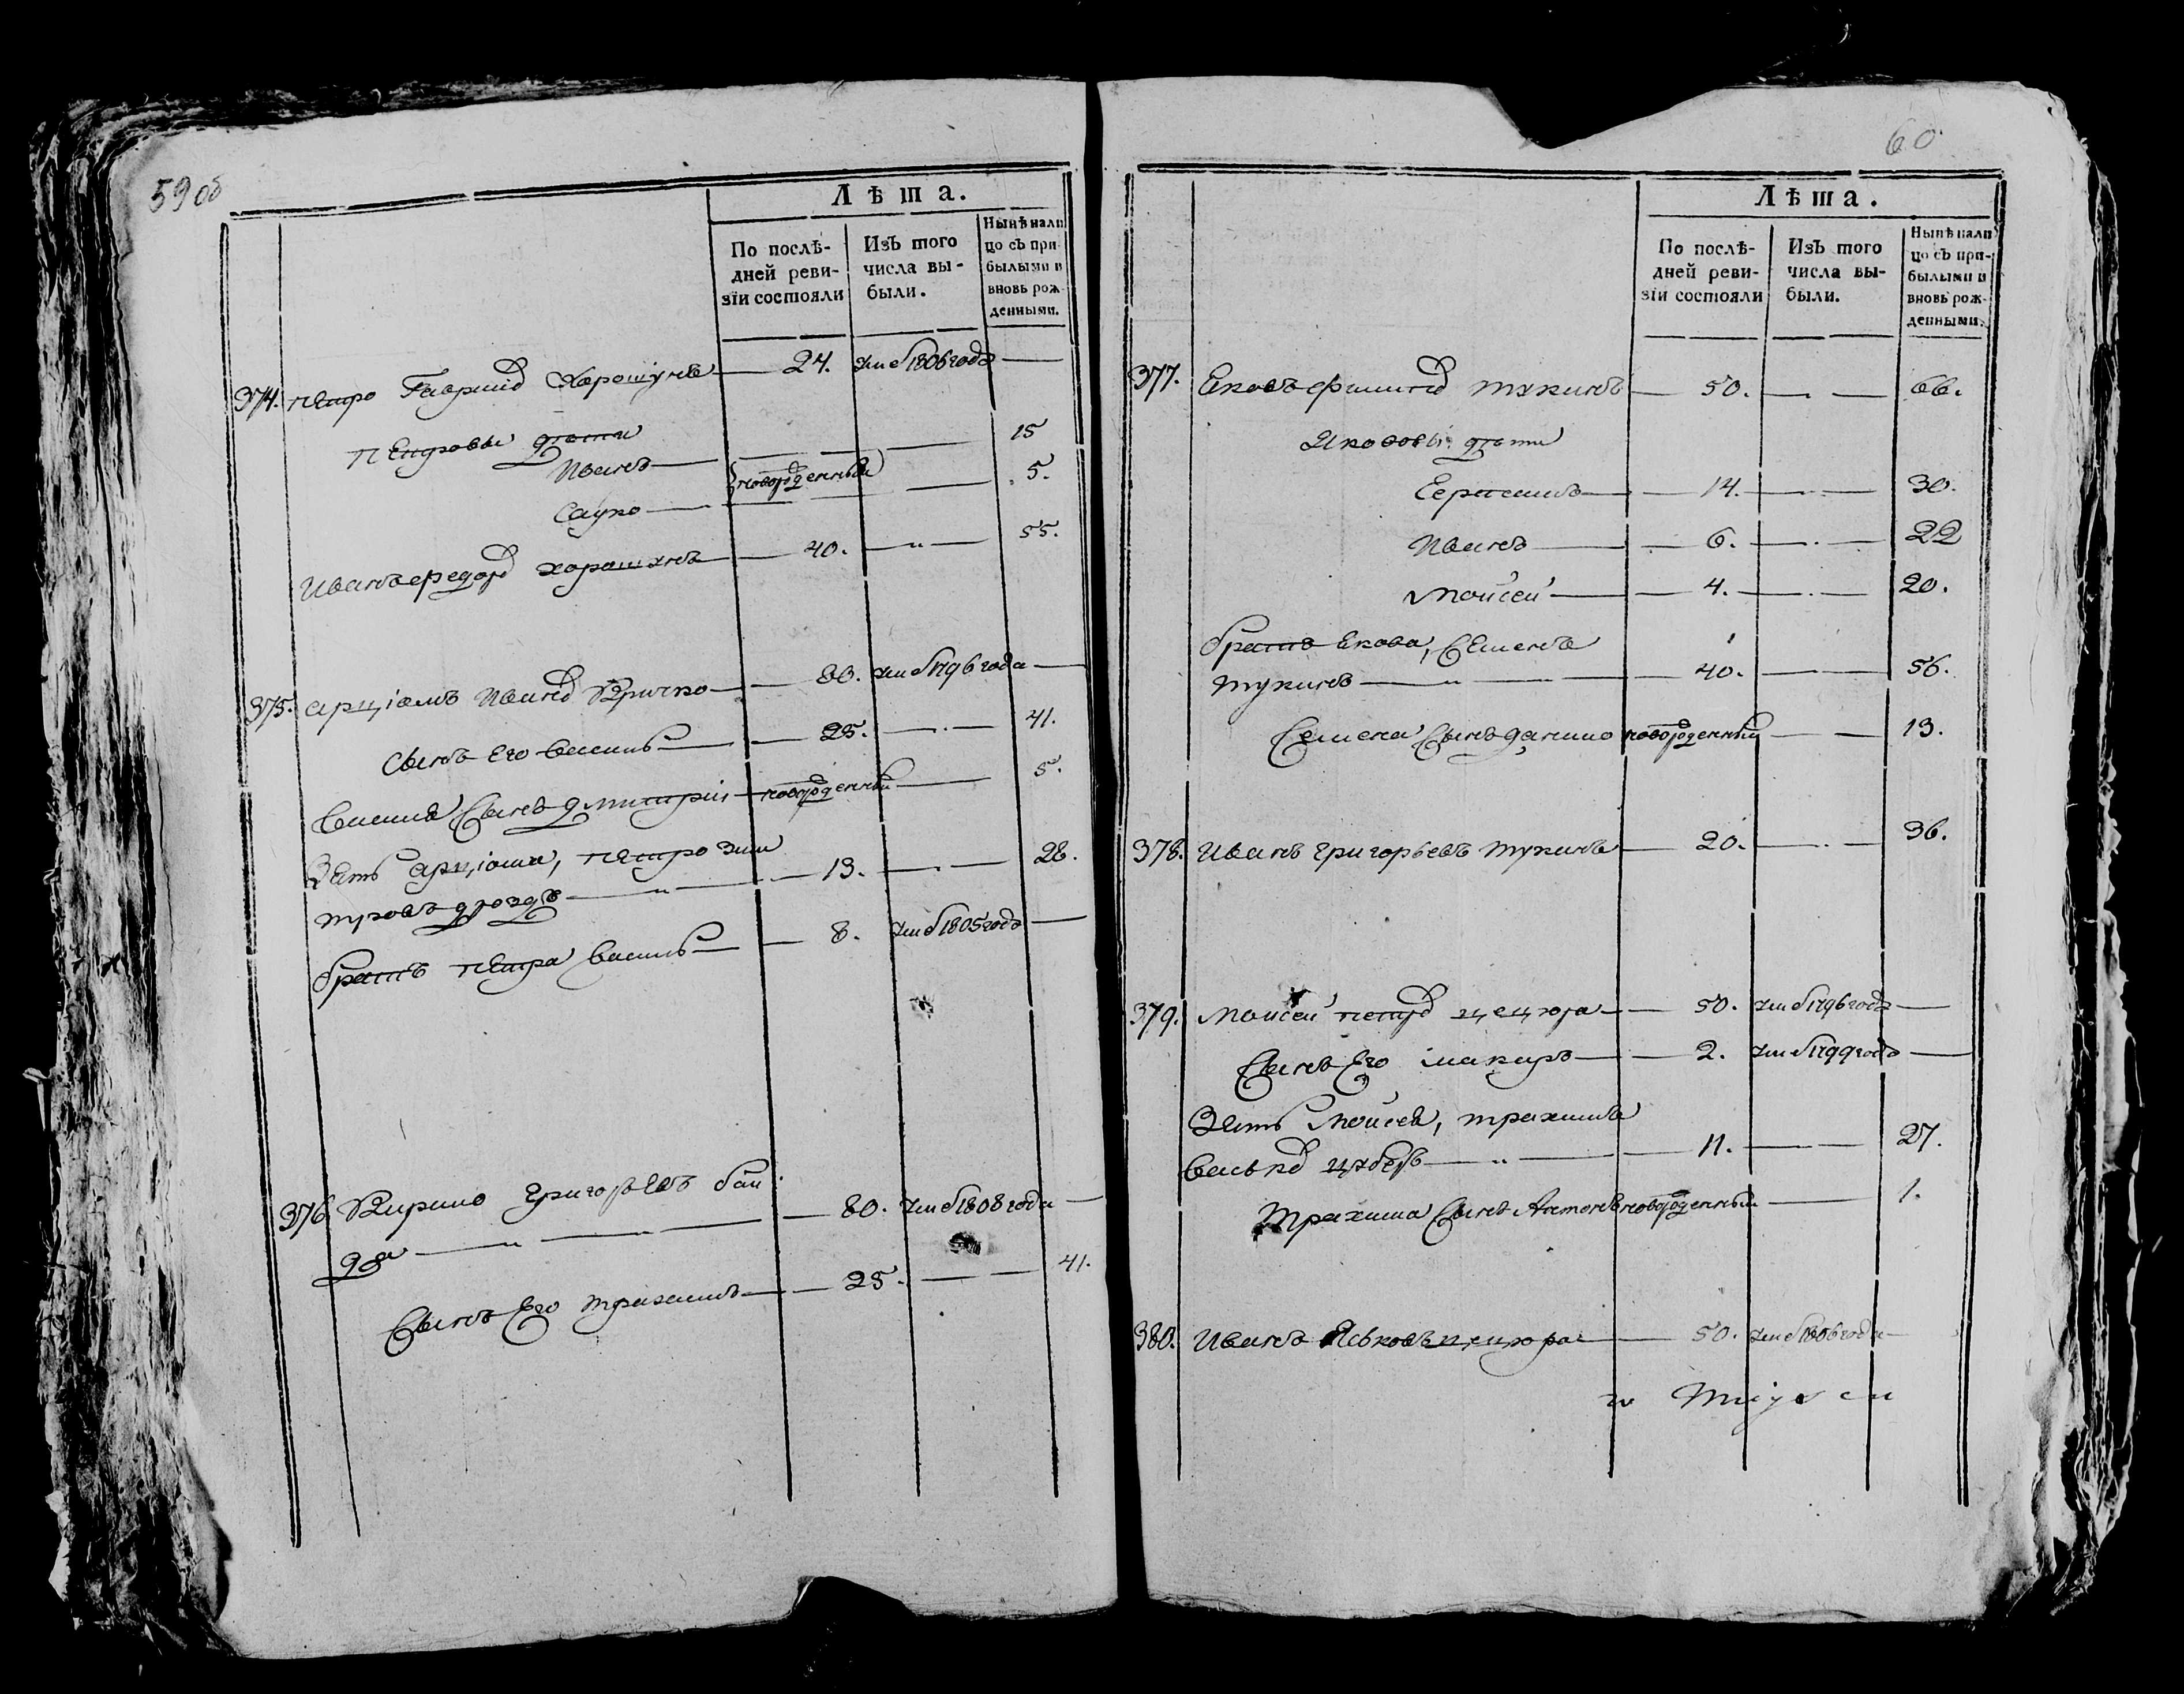 59 об
Лѣта.
По послѣ-
дней реви-
зїи состояли
Изъ того
числа вы-
были.
Нынѣ нали
цо съ при-
былыми и
вновь рож-
денными.
374. петро Гаврилов Харошунъ — 24. уме 1806 года —
петровы дѣти
Иванъ — новорожденный — 15
Сауко — 5.
Иванъ федоров харошунъ — 40. — „ — 55.
375. арціомъ Иванов Кричко — 60. уме 1796 года —
сынъ его василь — 25. — 41.
василя сынъ дмитрій новорожденный — 5.
Зять арціома, петро
дроздъ — „ — 13. — 28.
братъ петра василь — 8. уме 1805 года —
376. Кирило григорьевъ бай
да — „ — 80. уме 1808 года —
сынъ его трахимъ — 25. — 41.
60
Лѣта.
По послѣ-
дней реви-
зїи состояли
Изъ того
числа вы-
были.
Нынѣ нали
цо съ при-
былыми и
вновь рож-
денными.
377. Яковъ филипов тукинъ — 50. — 66.
Яковы дѣти
Герасимъ — 14. — 30.
Иванъ — 6. — 22
Мойсей — 4. — 20.
братъ Якова, Семенъ
тукинъ — „ — 40. — 56.
Семена сынъ данило новорожденный — 13.
378. Иванъ григорьевъ тукинъ — 20. — 36.
379. Мойсей петров цецюра — 50. уме 1796 года —
сынъ его макаръ — 2. уме 1799 года —
Зять Мойсея, трахимъ
васьков — „ — 11. — 27.
Трахима сынъ Антонъ новорожденный — 1.
380. Иванъ Яськовъ цецюра — 50. уме 1806 года —